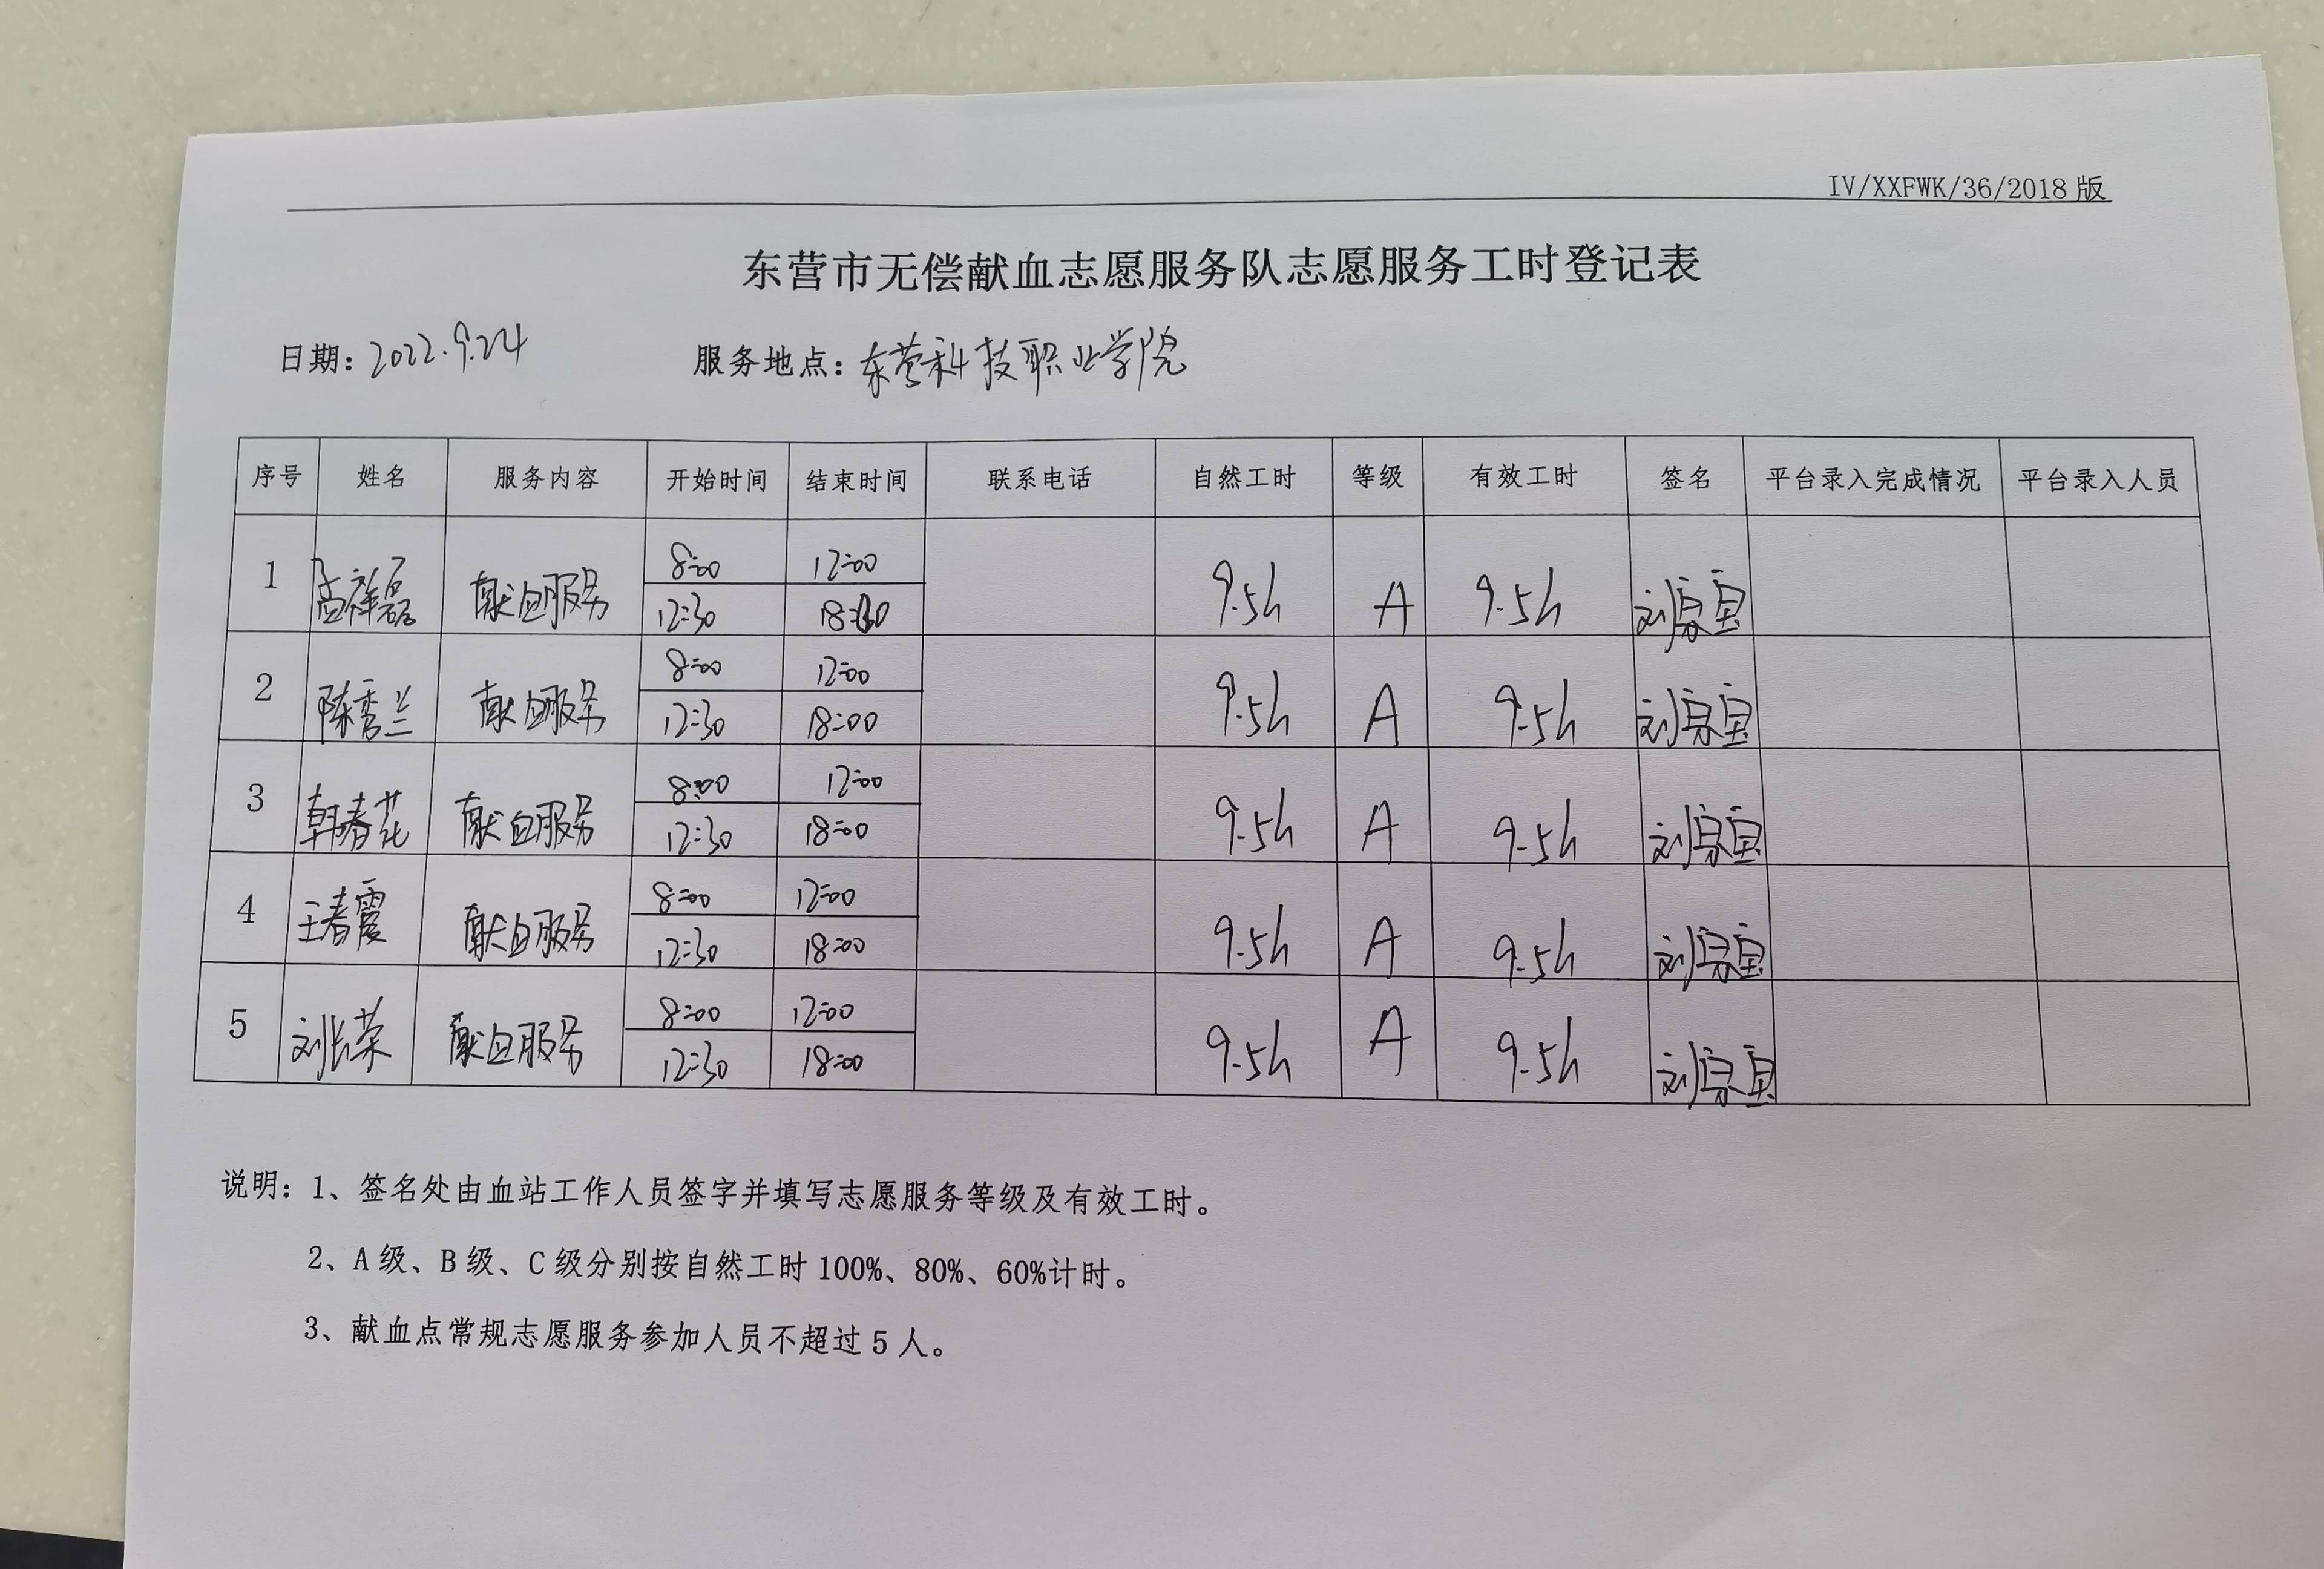 IV/XXFWK/36/2018版
东营市无偿献血志愿服务队志愿服务工时登记表
日期：2022.9.24 服务地点：东营科技职业学院
序号 姓名 服务内容 开始时间 结束时间 联系电话 自然工时 等级 有效工时 签名 平台录入完成情况 平台录入人员
1 孟祥磊 献血服务 8:00 12:00 9.5h A 9.5h
12:30
2 陈秀兰 献血服务 8:00 12:00 9.5h A 9.5h
12:30 18:00
3 韩春花 献血服务 8:00 12:00 9.5h A 9.5h
12:30 18:00
4 王春霞 献血服务 8:00 12:00 9.5h A 9.5h
12:30 18:00
5 刘长荣 献血服务 8:00 12:00 9.5h A 9.5h
12:30 18:00
说明：1、签名处由血站工作人员签字并填写志愿服务等级及有效工时。
2、A级、B级、C级分别按自然工时100%、80%、60%计时。
3、献血点常规志愿服务参加人员不超过5人。